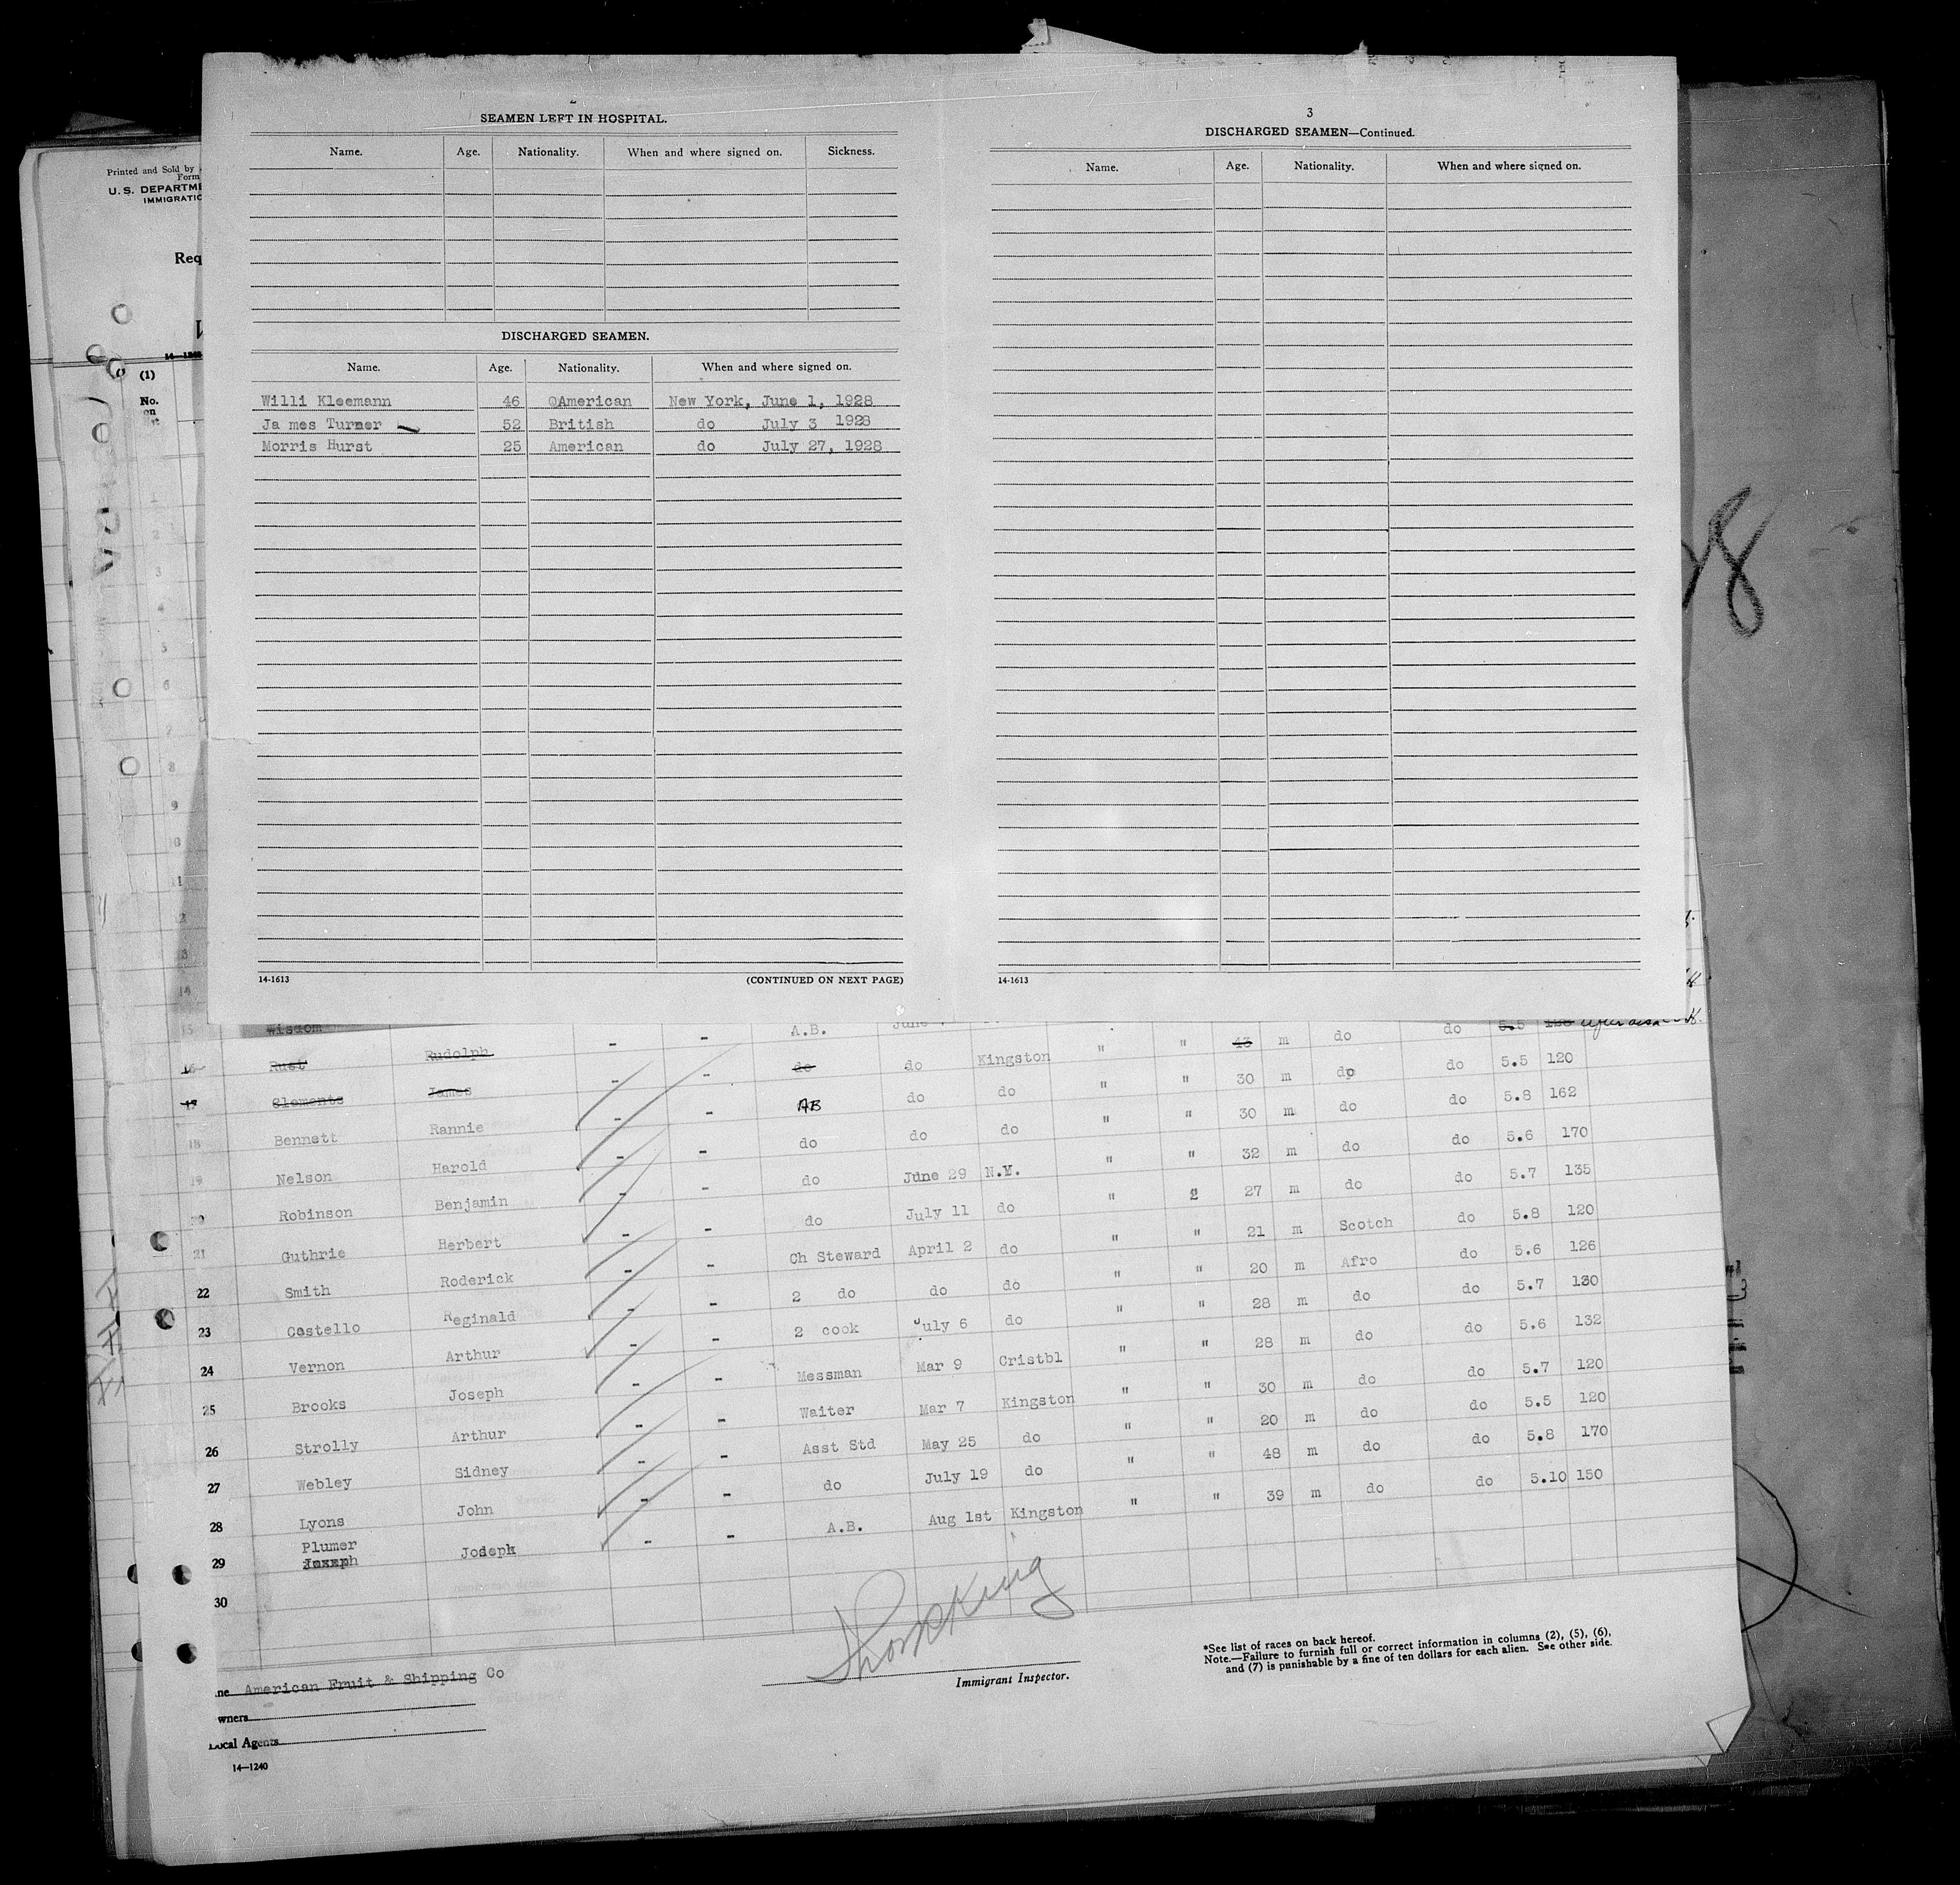 Printed and Sold by
Form
U.S. DEPARTME
IMMIGRATIO
Req
(1)
No.
on
2
SEAMEN LEFT IN HOSPITAL.
Name. Age. Nationality. When and where signed on. Sickness.
DISCHARGED SEAMEN.
Name. Age. Nationality. When and where signed on.
Willi Kleemann 46 @American New York, June 1, 1928
Ja mes Turner 52 British do July 3 1928
Morris Hurst 25 American do July 27, 1928
14-1613 (CONTINUED ON NEXT PAGE)
3
DISCHARGED SEAMEN—Continued.
Name. Age. Nationality. When and where signed on.
14-1613
28
15 Wisdom A.B. June do do 5.5
16 Rust Rudolph - - do do Kingston " " 43 m do do 5.5 120
17 Clements James - - AB do do " " 30 m do do 5.8 162
18 Bennett Rannie - - do do do " " 30 m do do 5.6 170
19 Nelson Harold - - do June 29 N.Y. " " 32 m do do 5.7 135
20 Robinson Benjamin - - do July 11 do " " 27 m do do 5.8 120
21 Guthrie Herbert - - Ch Steward April 2 do " " 21 m Scotch do 5.6 126
22 Smith Roderick - - 2 do do do " " 20 m Afro do 5.7 130
23 Costello Reginald - - 2 cook July 6 do " " 28 m do do 5.6 132
24 Vernon Arthur - - Messman Mar 9 Cristbl " " 28 m do do 5.7 120
25 Brooks Joseph - - Waiter Mar 7 Kingston " " 30 m do do 5.5 120
26 Strolly Arthur - - Asst Std May 25 do " " 20 m do do 5.8 170
27 Webley Sidney - - do July 19 do " " 48 m do do 5.10 150
28 Lyons John - - A.B. Aug 1st Kingston " " 39 m do
Plumer
29 Joseph Joseph - -
30
ne American Fruit & Shipping Co
wners
Local Agents
14—1240
Immigrant Inspector.
*See list of races on back hereof.
Note.—Failure to furnish full or correct information in columns (2), (5), (6),
and (7) is punishable by a fine of ten dollars for each alien. See other side.